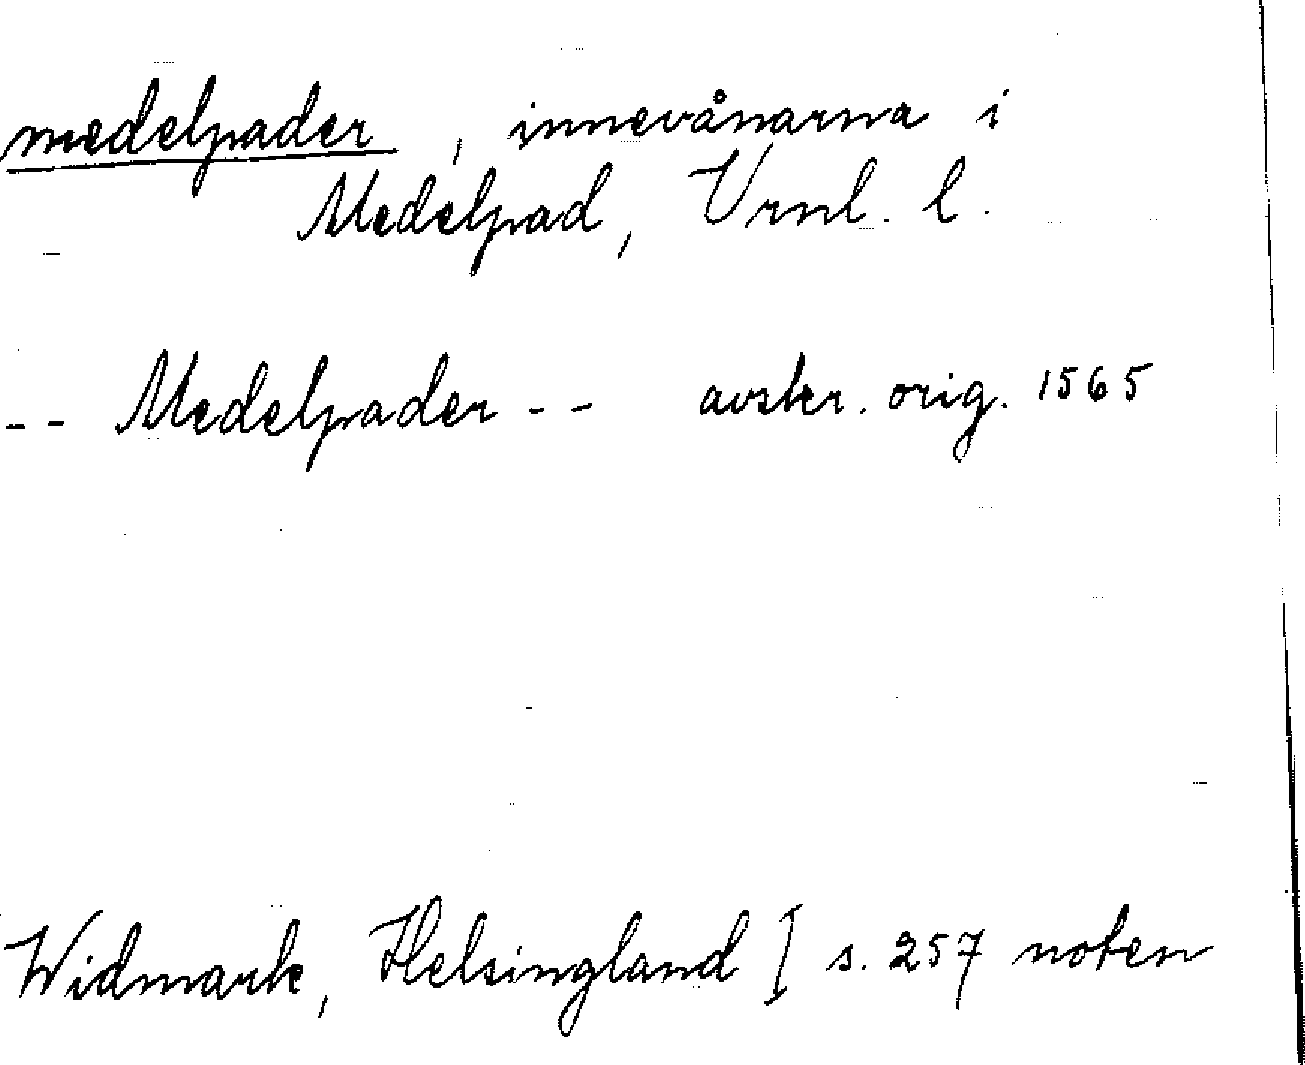 medelpader, innevånarna i
Medelpad, Vrnl. l.
-- Medelpader -- avskr. orig. 1565
Widmark, Helsingland I s. 257 noten